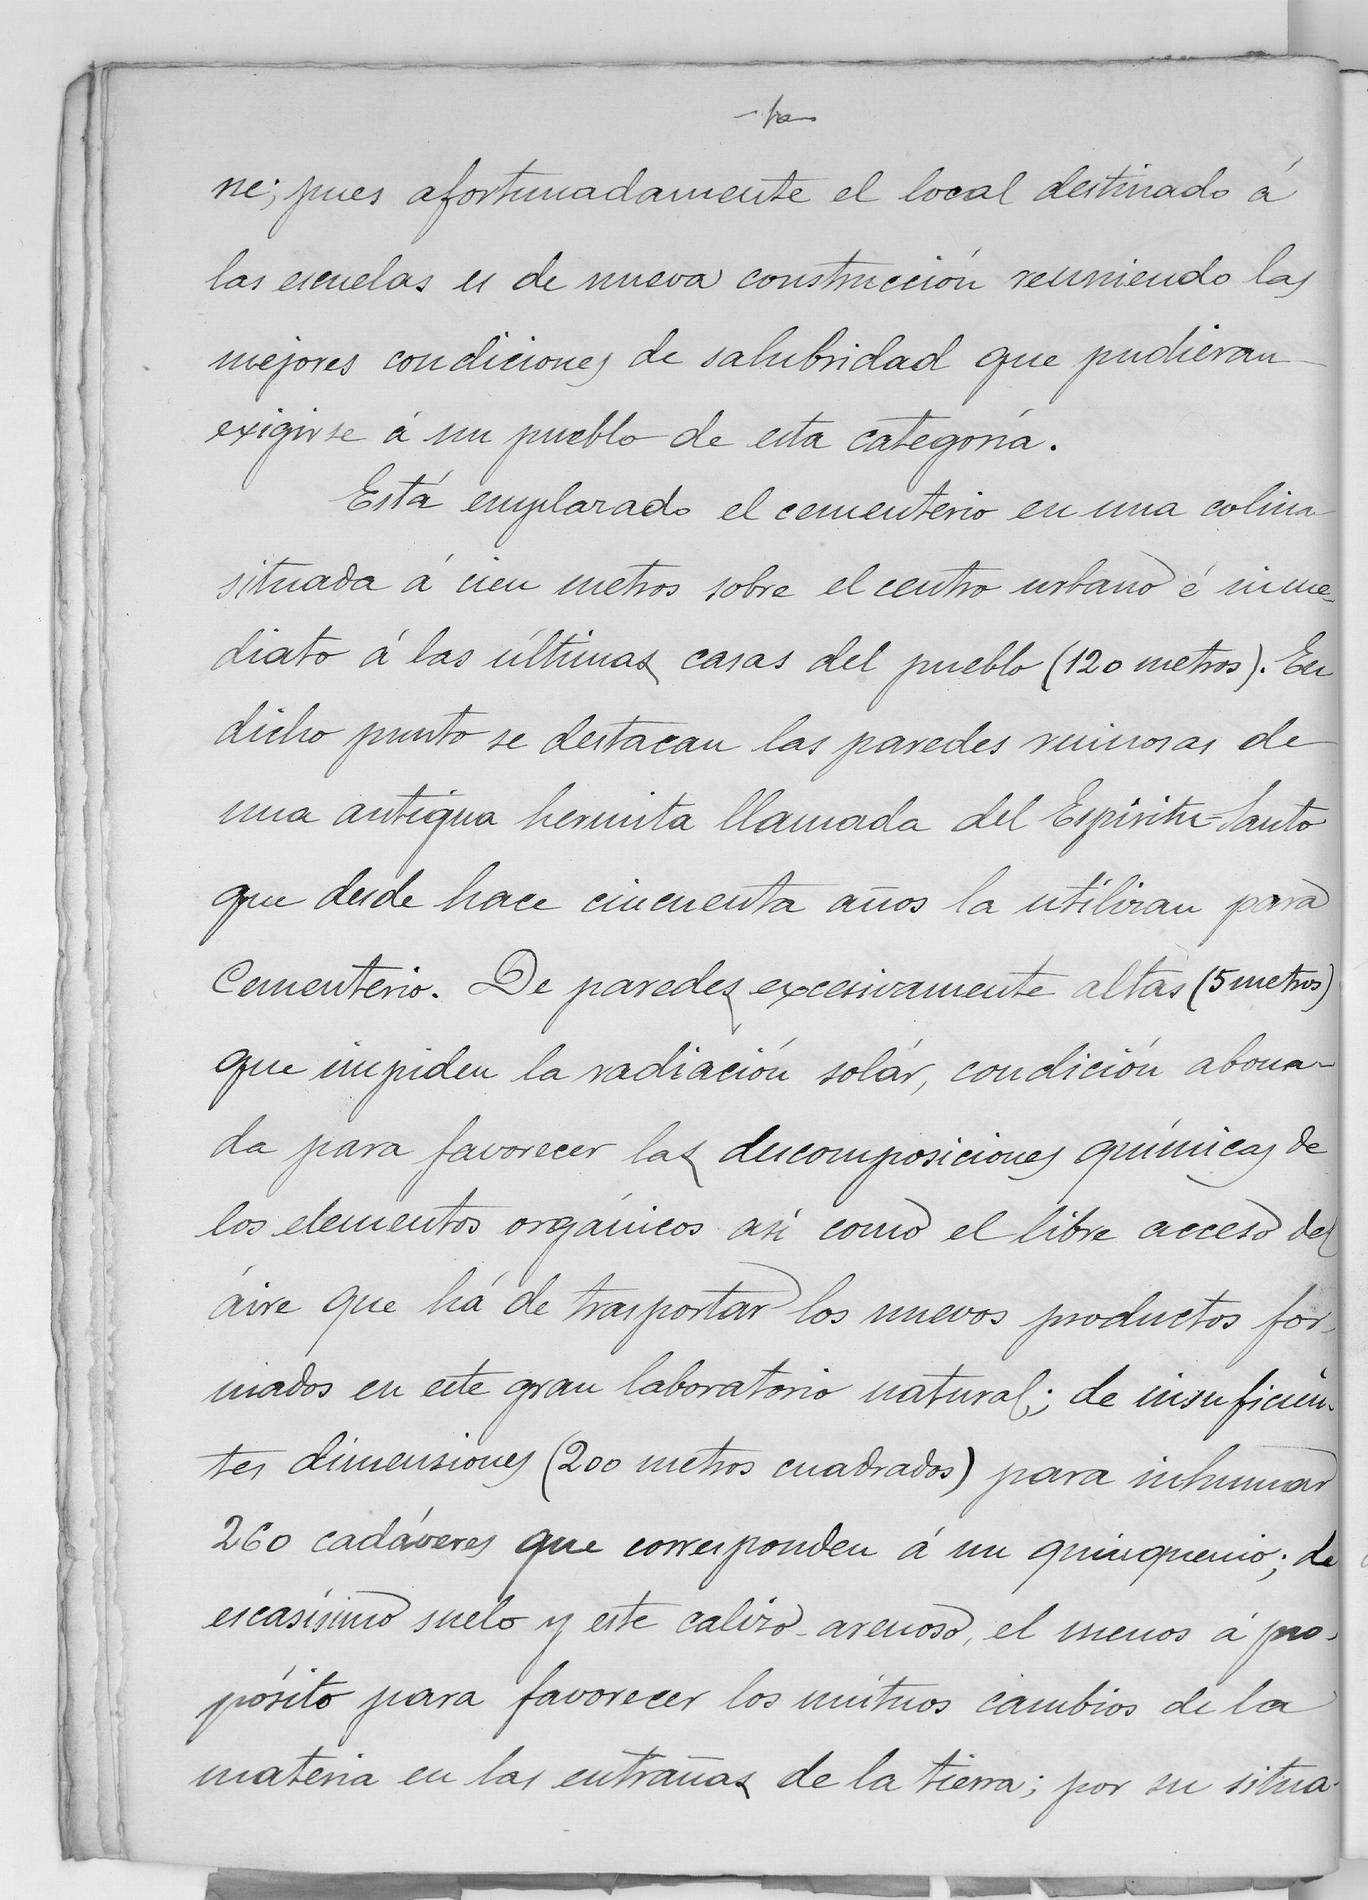 ne; pues afortunadamente el local destinado á
las escuelas es de nueva construcción reuniendo las
mejores condiciones de salubridad que pudieran
exigirse á un pueblo de esta categoría.
Está emplazado el cementerio en una colina
situada á cien metros sobre el centro urbano é inme-
diato á las últimas casas del pueblo (120 metros). En
dicho punto se destacan las paredes ruinosas de
una antigua hermita llamada del Espíritu-Santo
que desde hace cincuenta años la utilizan para
Cementerio. De paredes excesivamente altas (5 metros)
que impiden la radiación solár, condición abona-
da para favorecer las descomposiciones químicas de
los elementos orgánicos así como el libre acceso del
áire que há de trasportar los nuevos productos for-
mados en este gran laboratorio natural; de insuficien-
tes dimensiones (200 metros cuadrados) para inhumar
260 cadáveres que corresponden á un quinquenio; de
escasísimo suelo y este calizo-arenoso, el menos á pro-
pósito para favorecer los mútuos cambios de la
materia en las entrañas de la tierra; por su situa-